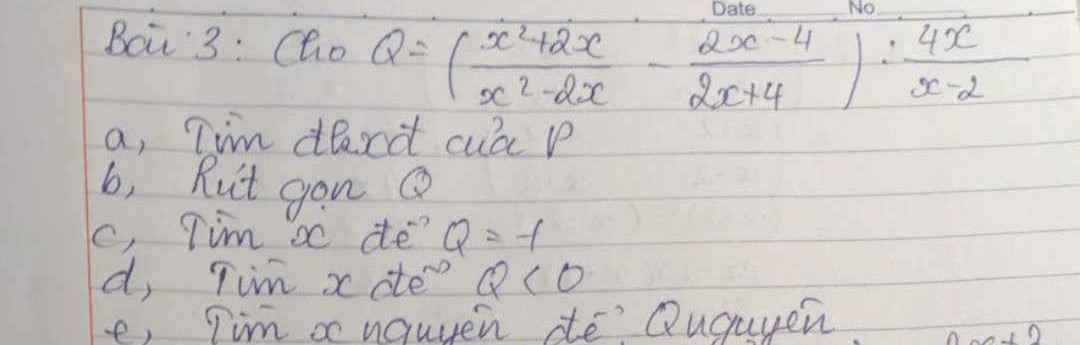 Date No
Bài 3: Cho Q = ( x²+2x / x²-2x - 2x-4 / 2x+4 ) : 4x / x-2
a, Tìm đkxđ của P
b, Rút gọn Q
c, Tìm x để Q = -1
d, Tìm x để Q < 0
e, Tìm x nguyên để Q nguyên
2x+2